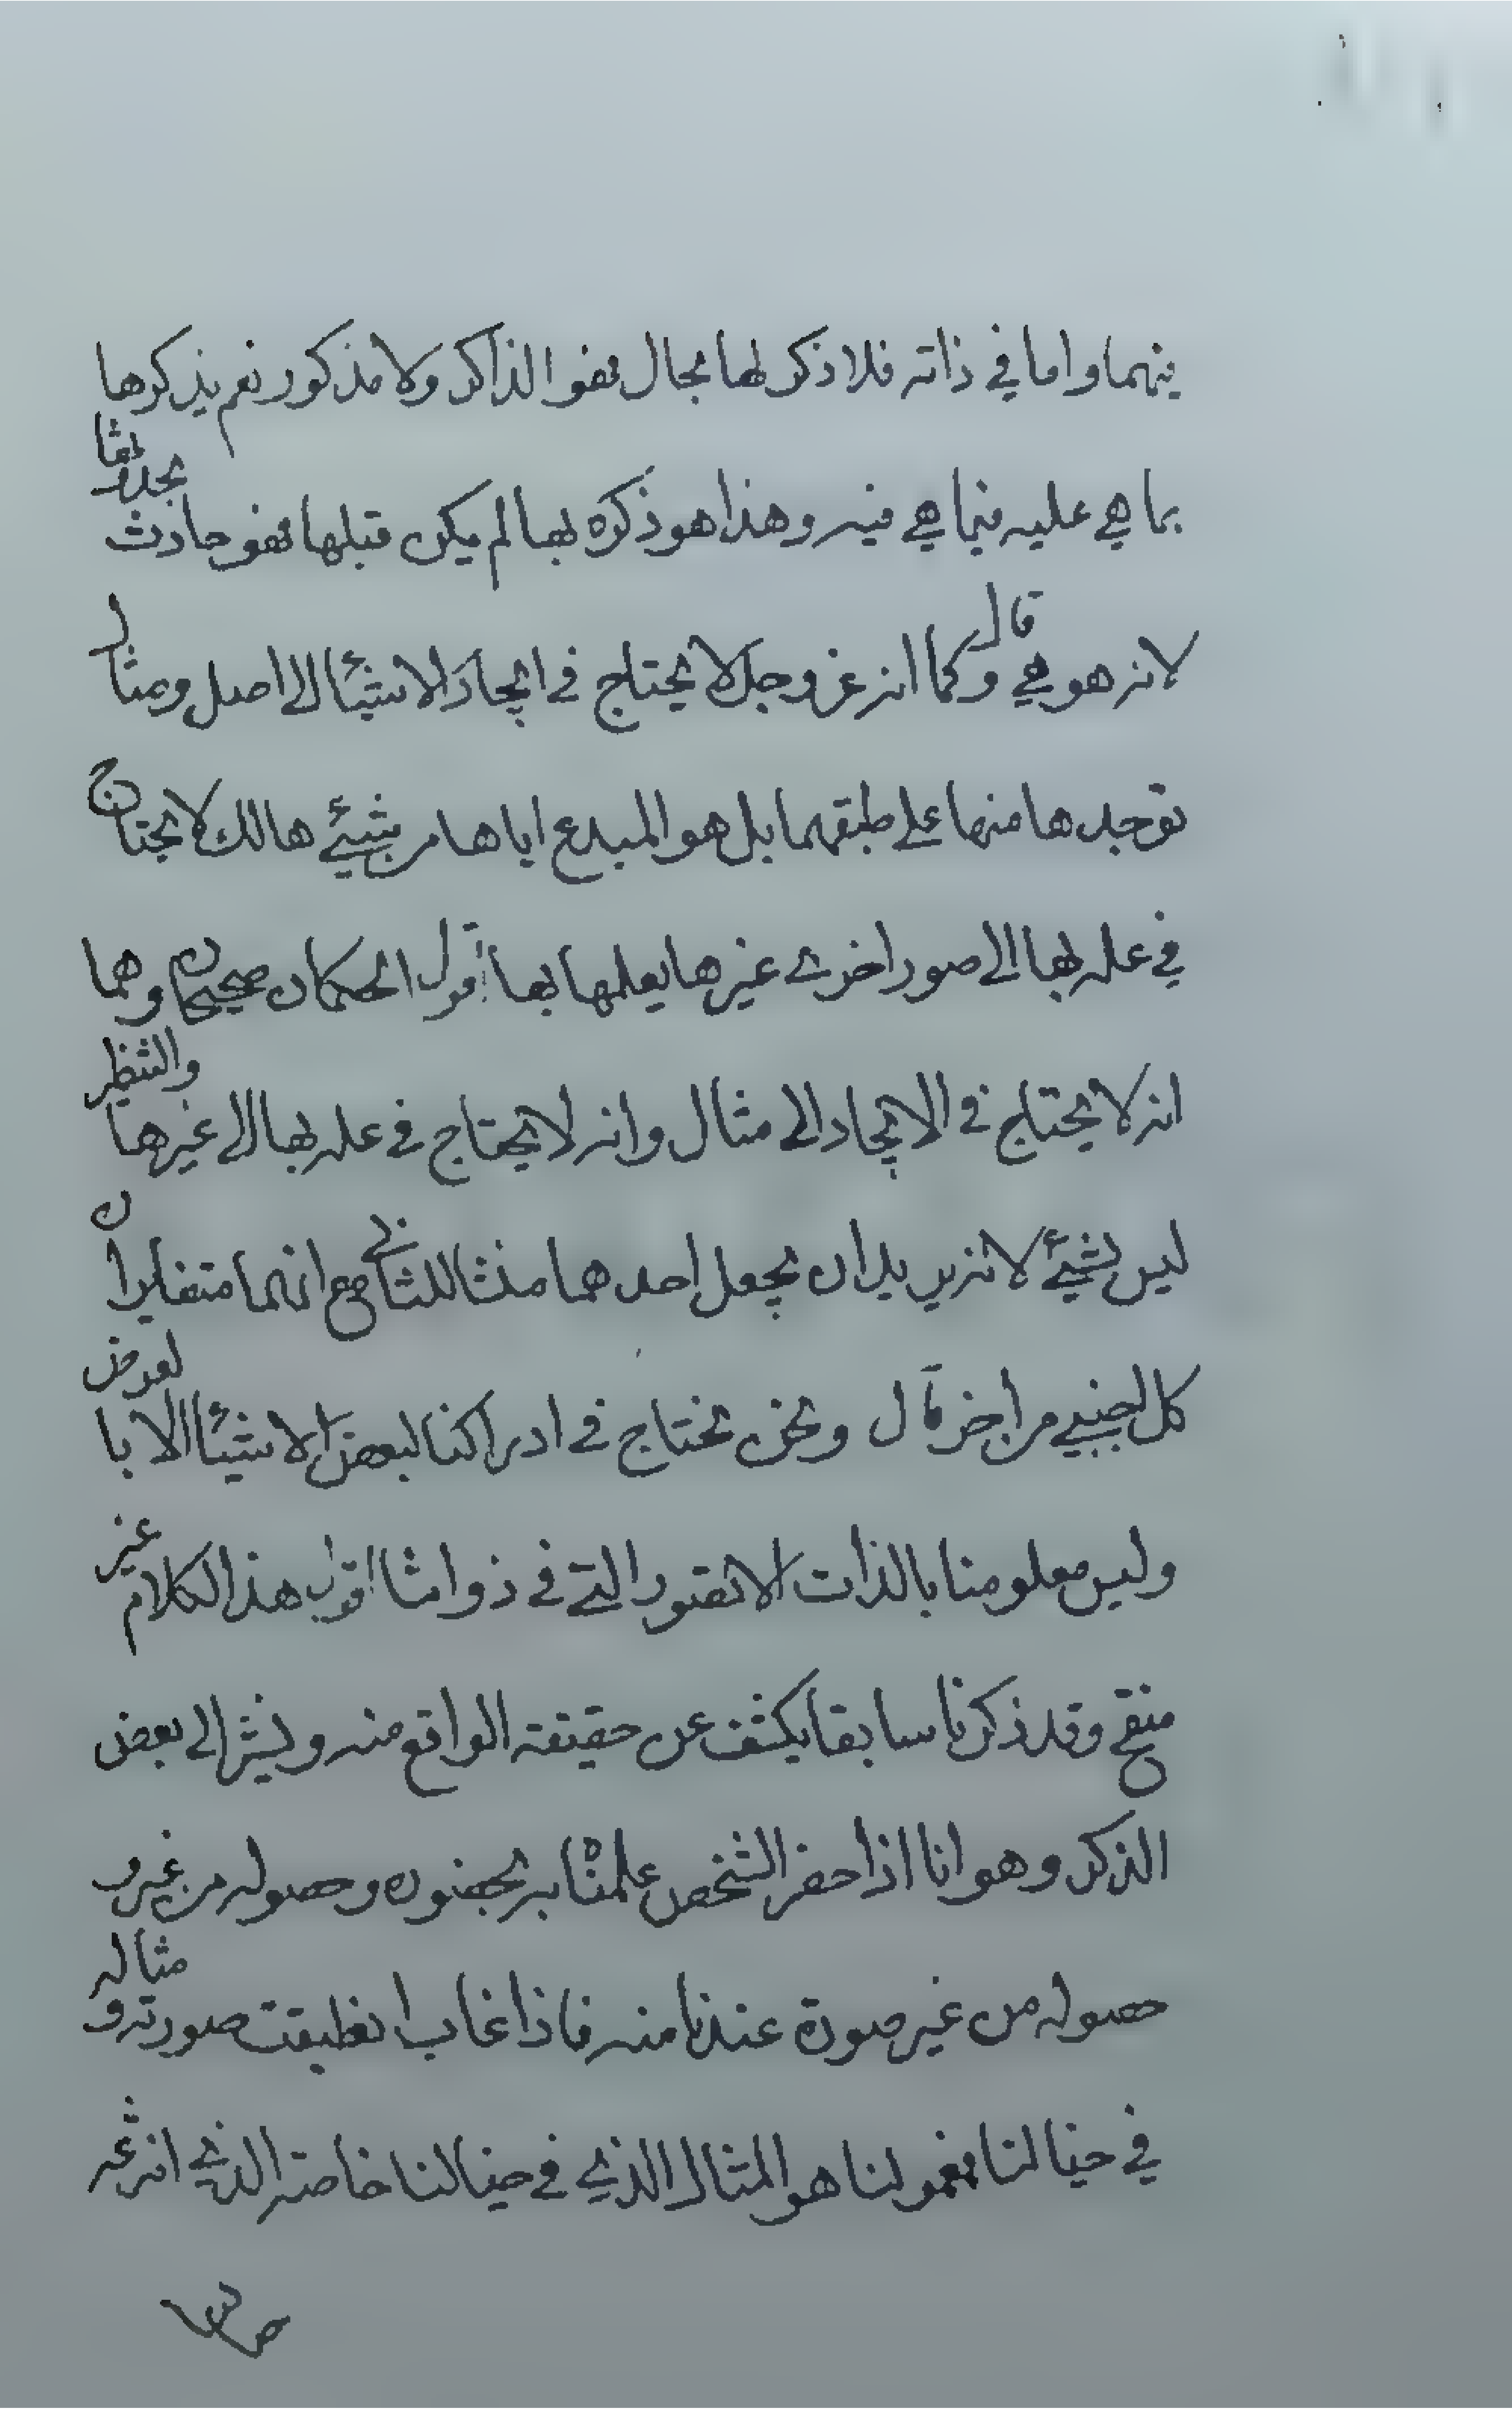 فيهما واما في ذاته فلا ذكر لها بحال فهو الذاكر ولا مذكور نعم يذكرها
بما هي عليه فيما هي فيه وهذا هو ذكره لها لم يكن قبلها فهو حادث بحدوثها
لانه هو هي قال وكما انه عز وجل لا يحتاج في ايجاد الاشيئا الى اصل ومثال
توجدها منها على طبقهما بل هو المبدع اياها من شيئ هالك لا يحتاج
في علمه لها الى صور اخرى غيرها يعلمها بها اقول الحكمان صحيحان وهما
انه لا يحتاج في الايجاد الى مثال وانه لا يحتاج في علمه بها الى غيرها والتنظير
ليس بشيئ لانه يريد ان يجعل احدهما مثثا للثاني مع انهما متغايران
كل اجنبي من اخر قال ونحن نحتاج في ادراكنا لبعض الاشيئا الا بالعرض
وليس معلومنا بالذات الا تقنور التي في ذواتنا اقول هذا الكلام غير
منقح وقد ذكرنا سابقا يكشف عن حقيقة الواقع منه ونشر الى بعض
الذكر وهو انا اذا حضر الشخص علمناه به بحضوره وحصوله من غير
حصوله من غير صورة عندنا منه فاذا غاب انطبقت صورته و مثاله
في خيالنا فمعلولنا هو المثال الذي في خيالنا خاصة الذي انتزعه